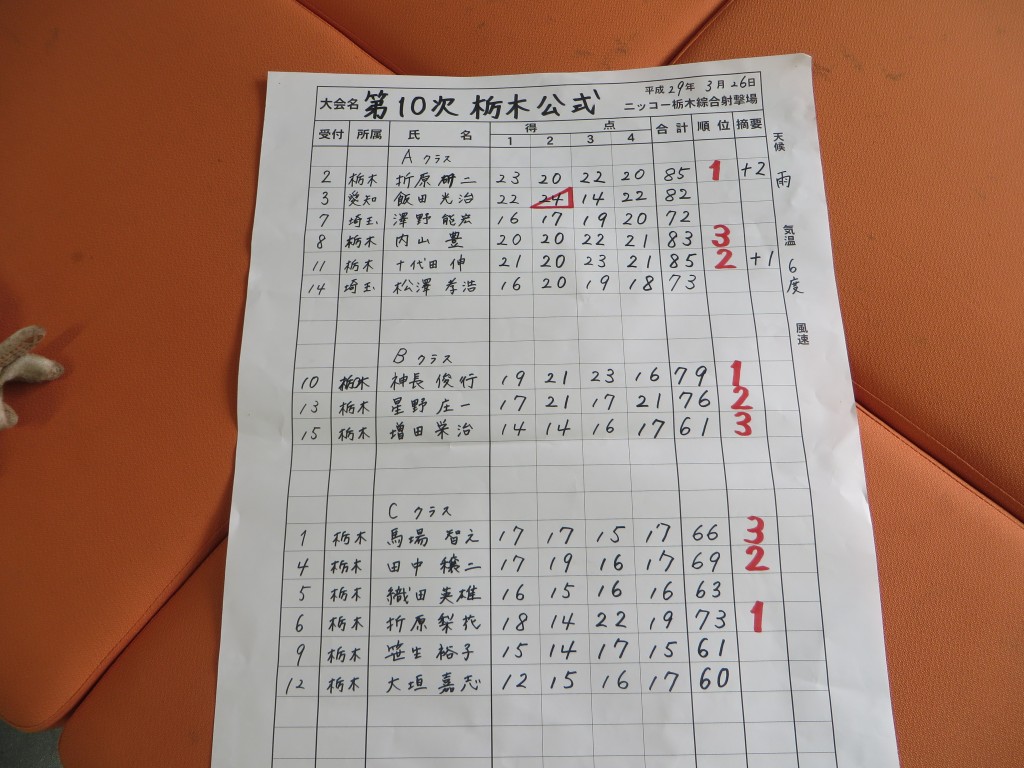 平成29年 3月26日
大会名 第10次 栃木公式 ニッコー栃木綜合射撃場
受付 所属 氏 名 得 点 合計 順位 摘要
1 2 3 4
Aクラス
2 栃木 折原研二 23 20 22 20 85 1 +2
3 愛知 飯田光治 22 24 14 22 82
7 埼玉 澤野能宏 16 17 19 20 72
8 栃木 内山豊 20 20 22 21 83 3
11 栃木 十代田伸 21 20 23 21 85 2 +1
14 埼玉 松澤孝浩 16 20 19 18 73
Bクラス
10 栃木 神長俊行 19 21 23 16 79 1
13 栃木 星野庄一 17 21 17 21 76 2
15 栃木 増田栄治 14 14 16 17 61 3
Cクラス
1 栃木 馬場智之 17 17 15 17 66 3
4 栃木 田中穣二 17 19 16 17 69 2
5 栃木 織田英雄 16 15 16 16 63
6 栃木 折原梨花 18 14 22 19 73 1
9 栃木 笹生裕子 15 14 17 15 61
12 栃木 大垣嘉志 12 15 16 17 60
天候 雨
気温 6度
風速